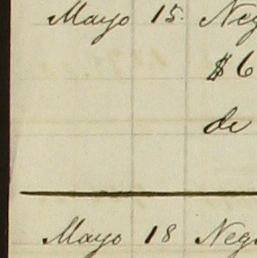 Mayo 15. Neg
$6
de
Mayo 18 Neg